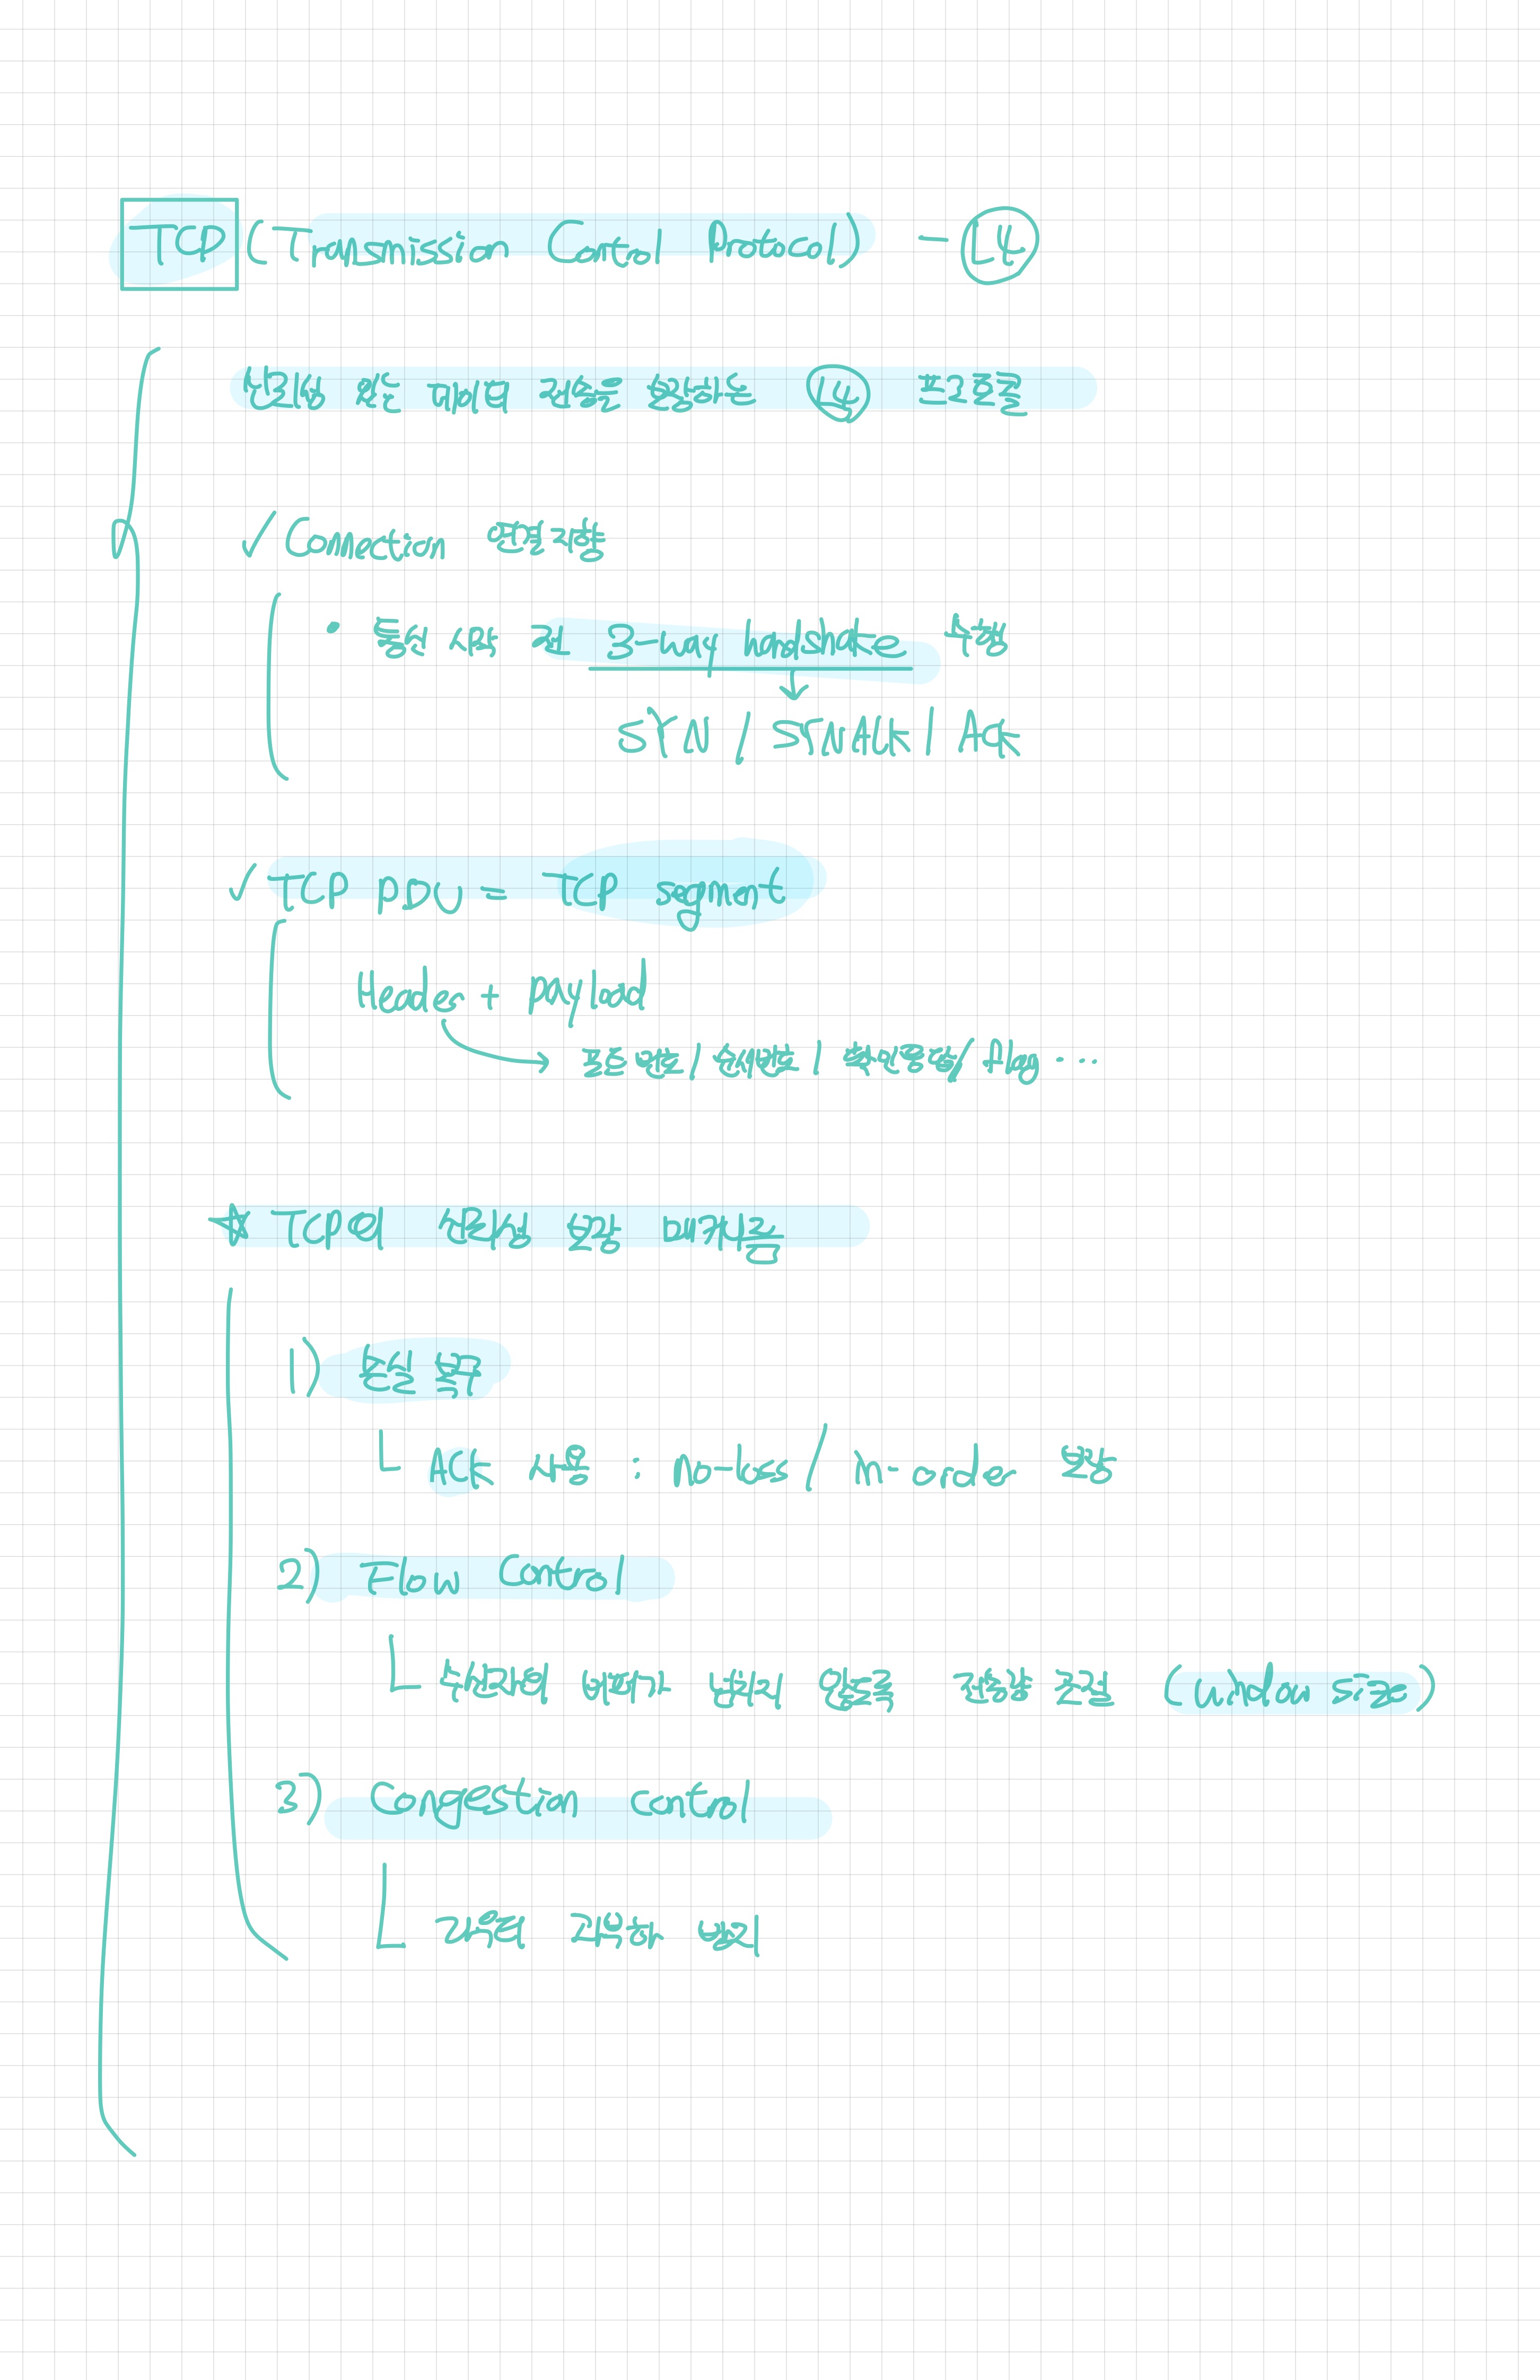 TCP (Transmission Control Protocol) - L4
신뢰성 있는 데이터 전송을 보장하는 L4 프로토콜
✓ Connection 연결지향
• 통신 시작 전 3-way handshake 수행
↓
SYN / SYNACK / ACK
✓ TCP PDU = TCP segment
Header + payload
→ 포트번호 / 순서번호 / 확인응답 / flag ...
☆ TCP의 신뢰성 보장 메커니즘
1) 손실 복구
└ ACK 사용 : no-loss / in-order 보장
2) Flow Control
└ 수신자의 버퍼가 넘치지 않도록 전송량 조절 (window size)
3) Congestion control
└ 네트워크 과부하 방지